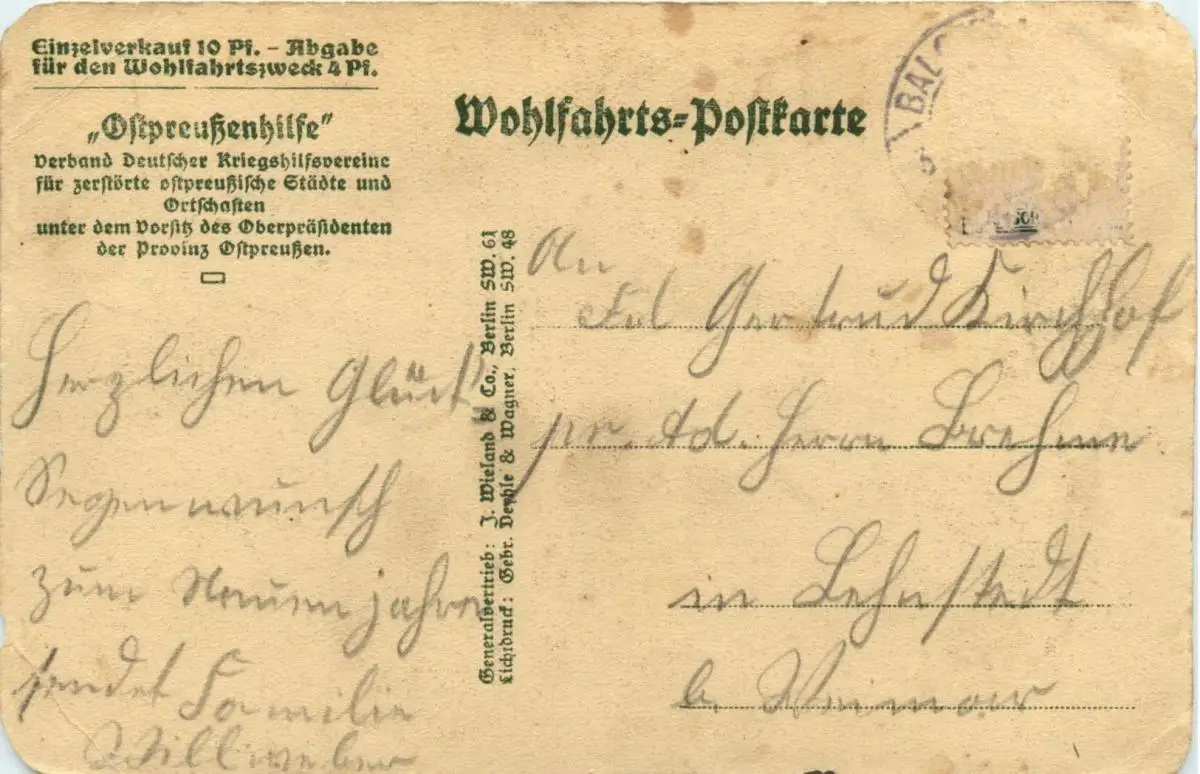 Einzelverkauf 10 Pf. - Abgabe
für den Wohlfahrtszweck 4 Pf.
„Ostpreußenhilfe"
Verband Deutscher Kriegshilfsvereine
für zerstörte ostpreußische Städte und
Ortschaften
unter dem Vorsitz des Oberpräsidenten
der Provinz Ostpreußen.
Wohlfahrts-Postkarte
BALG
Generalvertrieb: J. Wieland & Co., Berlin SW. 61
Lichtdruck: Gebr. Dehle & Wagner, Berlin SW. 48
Herzlichen Glück
Segenwunsch
zum Neuen jahre
sendet Familie
Willweber
An
Frl Gertrud Kirchhof
pr. Ad. Herrn Brehme
in Lehnstedt
b. Weimar